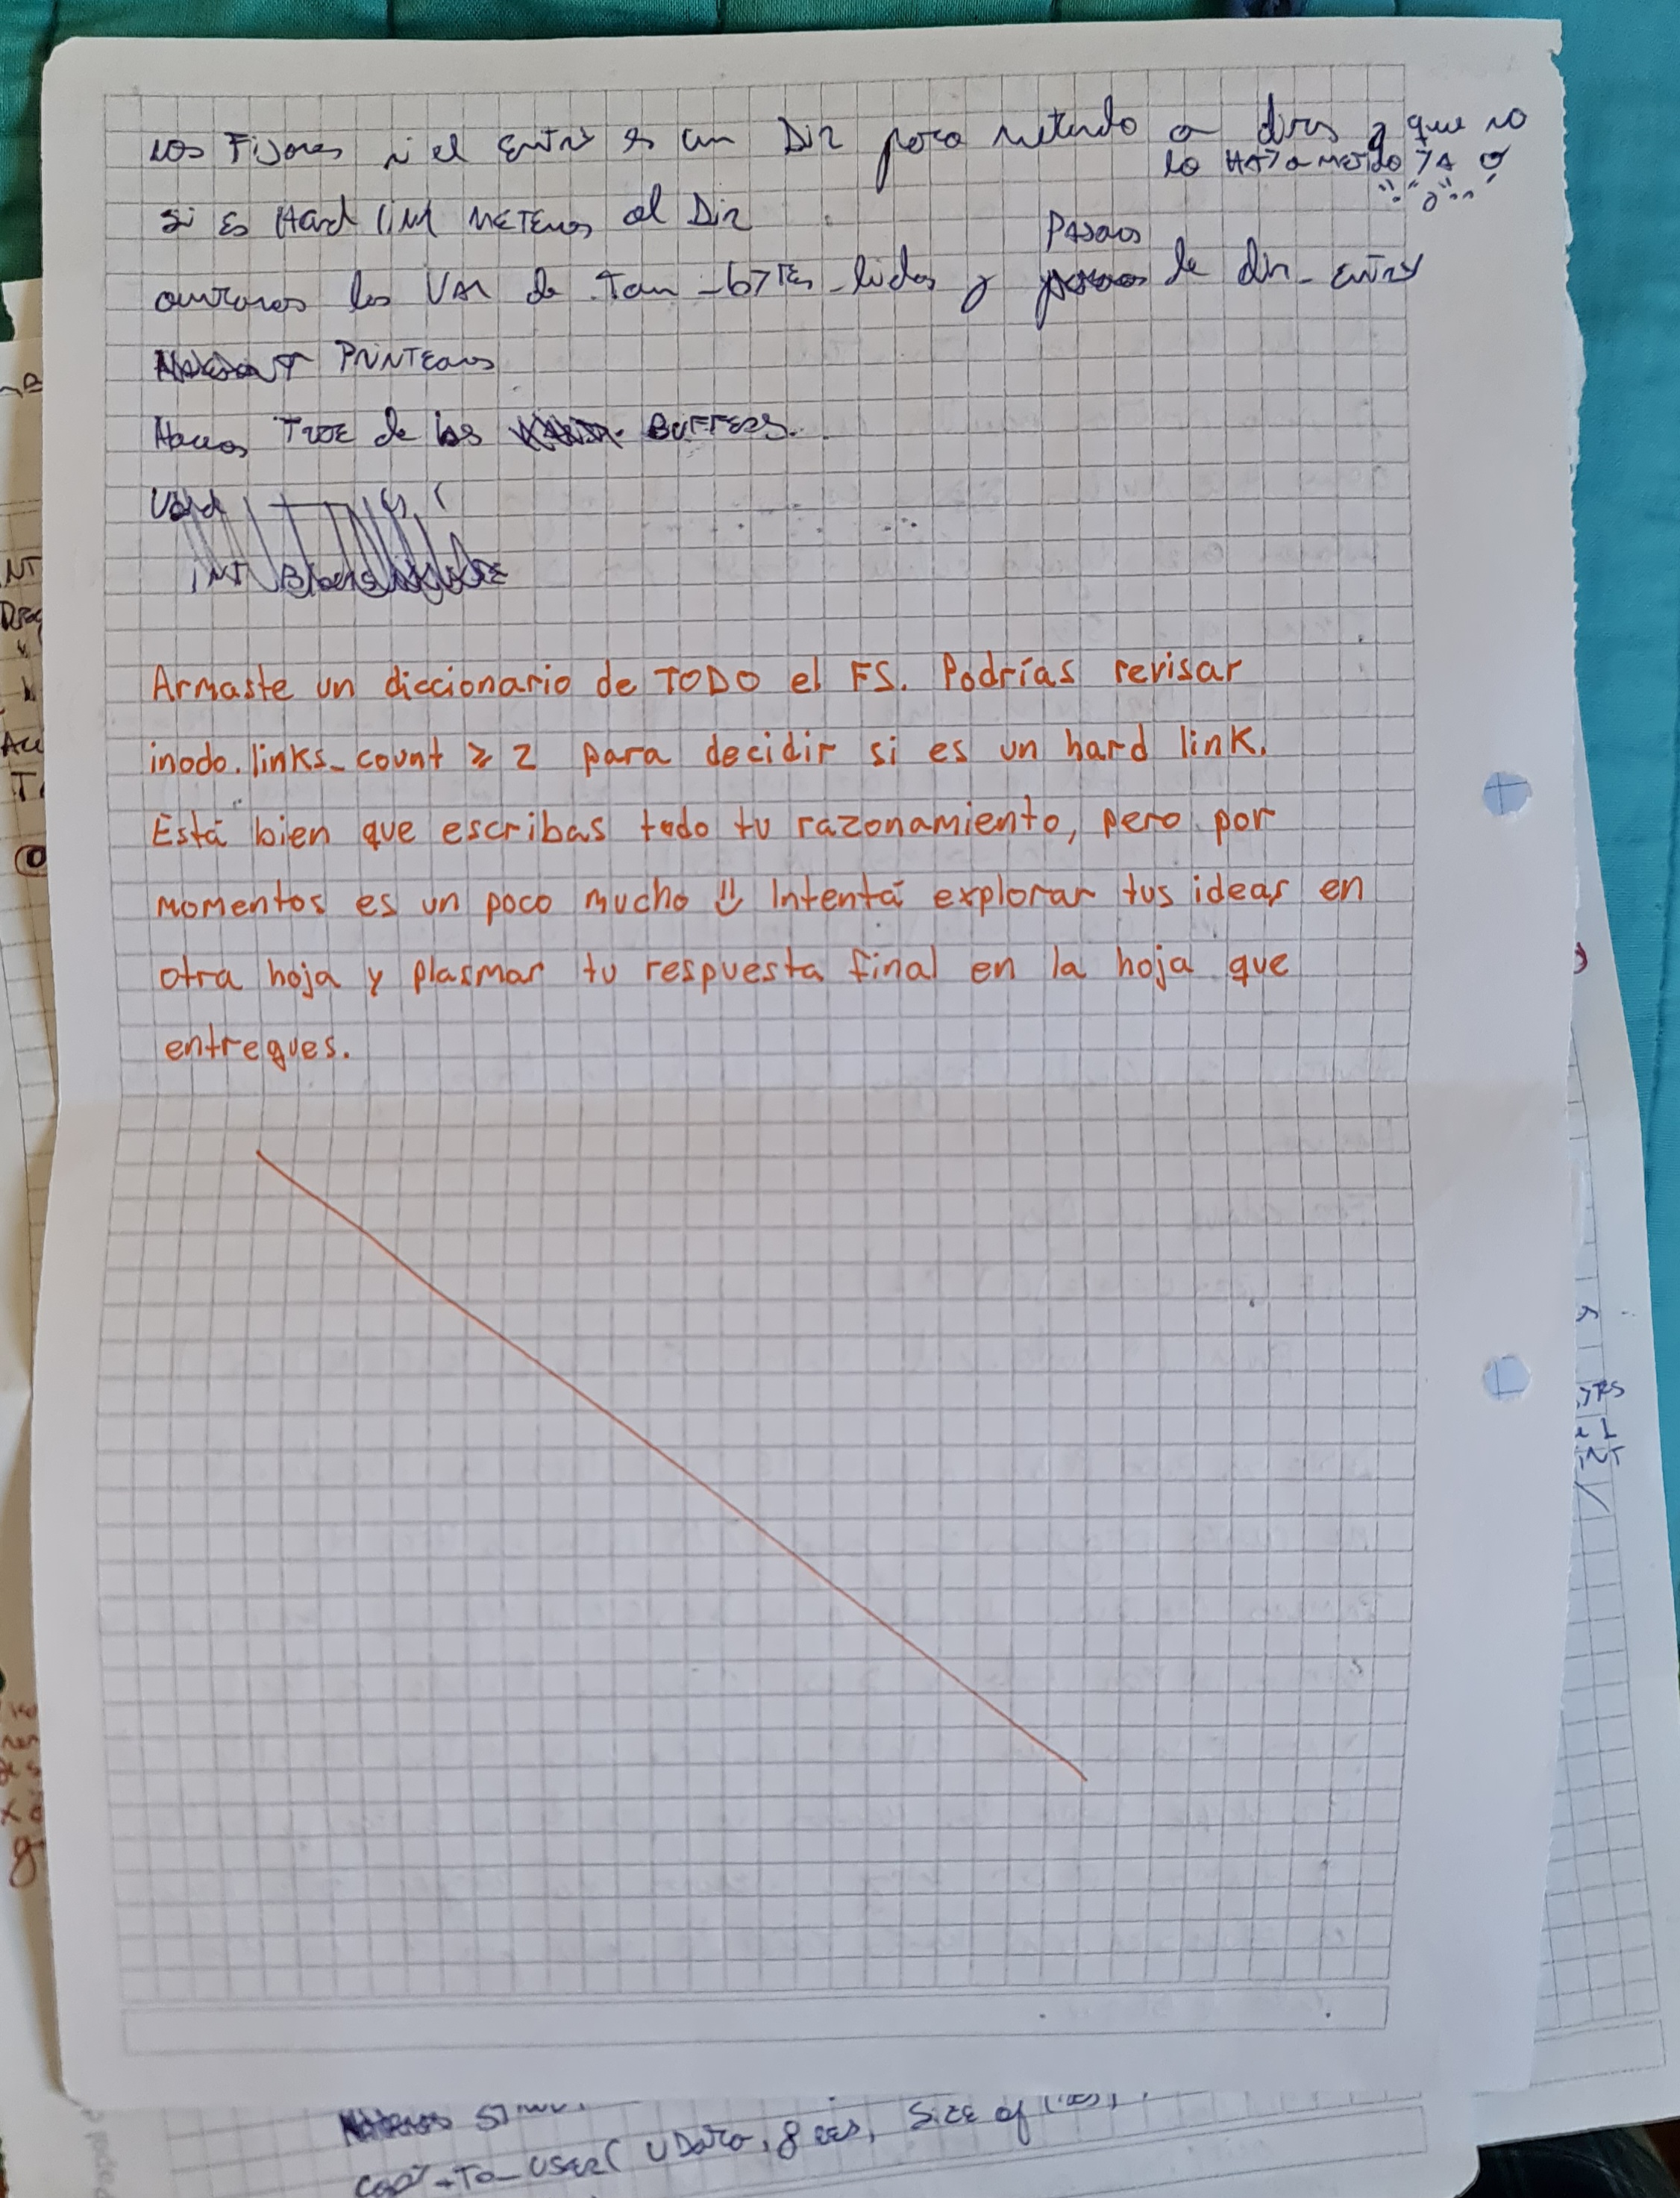 nos Fijamos si el entry es un Dir para meterlo a dirs y que no
lo HAYA metido YA
si es Hard link METEmos al Dir
aumtamos las VAR de tam_bytes_leidos y Pasamos de dir_entry
PRINTEamos
Hacemos FREE de los BUFFERS.
Armaste un diccionario de TODO el FS. Podrías revisar
inodo.links_count ≥ 2 para decidir si es un hard link.
Está bien que escribas todo tu razonamiento, pero por
momentos es un poco mucho Intentá explorar tus ideas en
otra hoja y plasmar tu respuesta final en la hoja que
entregues.
copy_To_USER( UData, &res, Size of (res),